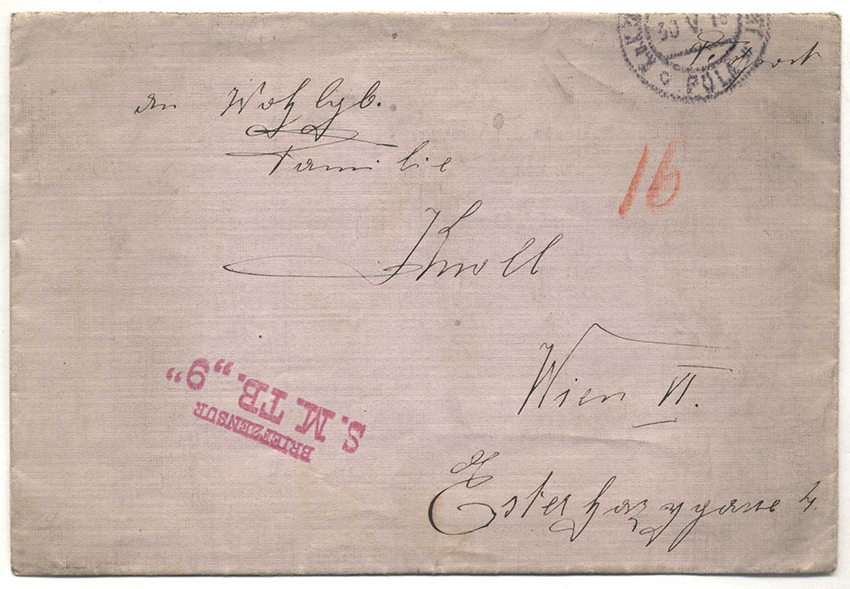 30 V 16
POLA
Feldpost
An Wohlgb.
Familie
16
Knoll
Wien VI.
BRIEFZENSUR
S. M. TB. „9“
Esterhazygasse 4.